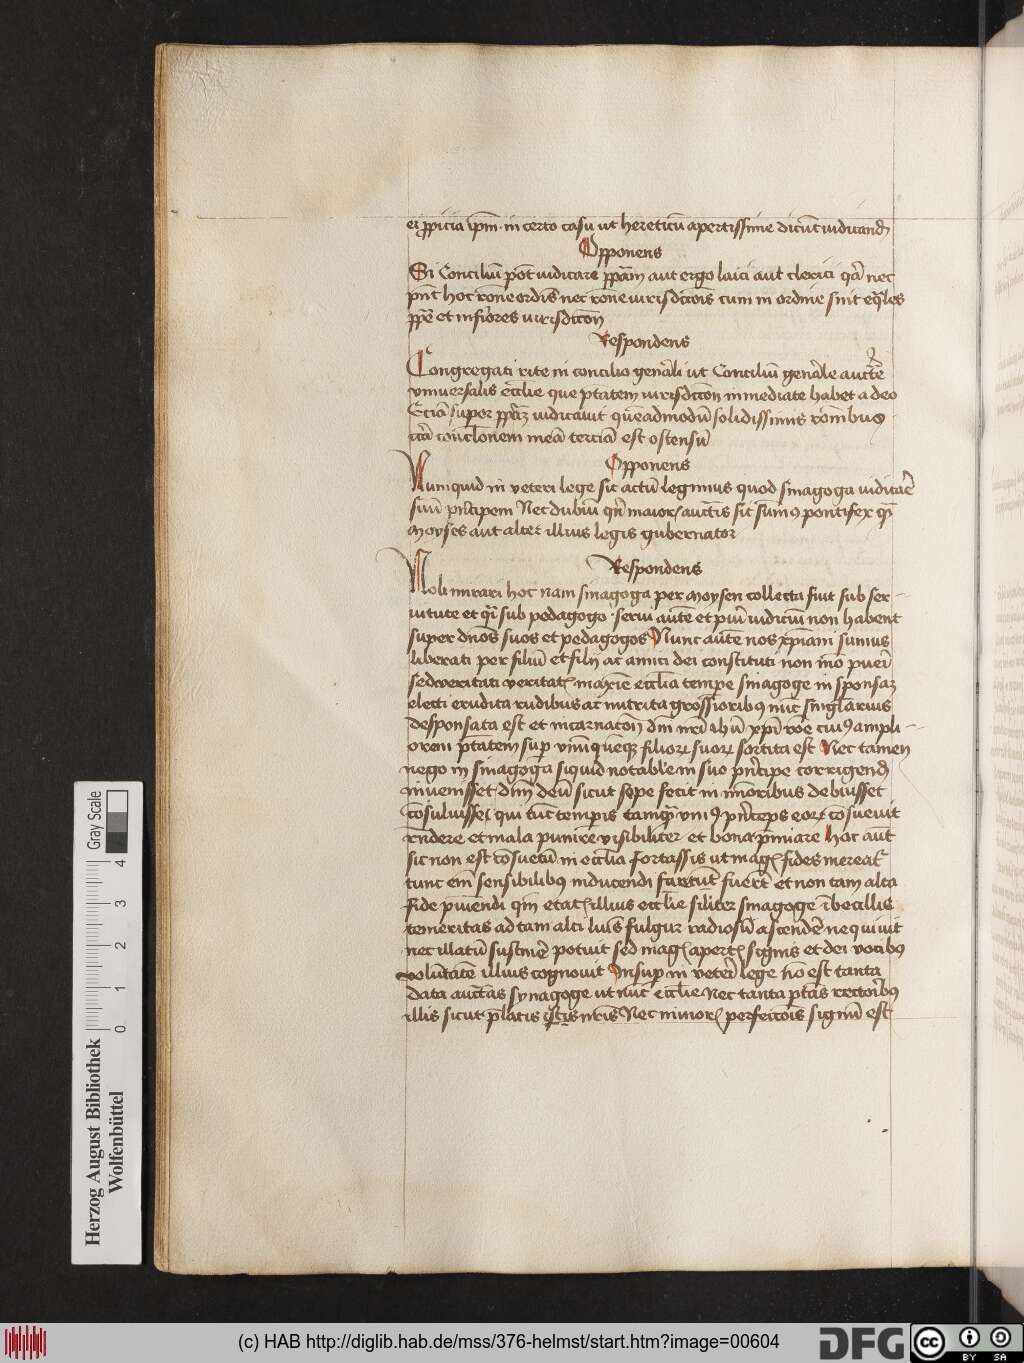 et ꝓpicia ip̄m in certo casu ut hereticū apertissime dicūt iudicand̄
Opponens
Si Conciliū pōt iudicare ppām aut ergo laici aut clerici qđ nec
pn̄t hoc rōne ordīs nec rōne iurisdictōis cum in ordine sint eq̄les
ppē et inferiores iurisdictōn
Respondens
Congregati rite in concilio gen̄ali ut Concilium gen̄ale auctē
vniuersalis eccl̄ie que ptātem iurisdictōn inmediate habet a deo
Eciā super ppām iudicauit quēadmodū solidissimis rōnibus
c̄ta conclōnem meā terciā est ostensū
Opponens
Numquid in veteri lege sic actū legimus quod sinagoga iudicaūe
suū pn̄cipem Nec dubiū qn̄ maior auct̄is sit sūmꝰ pontifex qm̄
moyses aut alter illius legis gubernator
Respondens
Noli mirari hoc nam sinagoga per moysen collecta fuit sub ser-
uitute et qͣsi sub pedagogo serui autē et puī iudiciū non habent
super dn̄os suos et pedagogos Nunc autē nos xp̄iani sumus
liberati per filiū et filij ac amici dei constituti non īmo pueri
sed veritati maxīe eccl̄ia tempe sinagoge in sponsaꝫ
electi erudita rudibus ac nutrita grossioribꝰ nūc singlarius
desponsata est et incarnatōī dn̄i nr̄i ih̄u xp̄i rōe cuiꝰ ampli-
orem ptātem sup vnūquēqꝫ filioꝝ suoꝝ sortita est Nec tamen
nego in sinagoga siquid notabile in suo pn̄cipe corrigend̄
inuenisset dn̄m deū sicut sepe fecit in minoribus debuisset
cōsuluisse qui tūc tempis tamqͣ vniꝰ pn̄ceps eoꝝ cōsueuit
rn̄dere et mala punire visibiliter et bona p̄miare Hoc aūt
sic non est cōsuetū in eccl̄ia fortassis ut magꝭ fides mereatᷣ
tunc em̄ sensibilibꝰ inducendi fuerūt et non tam alta
fide puiendi qm̄ etatꝭ illius eccl̄ie siliter sinagoge ībecillis
teneritas ad tam alti luīs fulgur radiosū ascendē nequiuit
nec illatū sustinē potuit sed magꝭ apertꝭ signis et dei vocibꝰ
volūtātē illius cognouit Insup in veteri lege nō est tanta
data auctās synagoge ut nūc eccl̄ie Nec tanta ptās rectoribꝰ
illis sicut p̄latis istis nr̄is Nec minorꝭ perfectōis signū est
Gray Scale
0 1 2 3 4
Herzog August Bibliothek
Wolfenbüttel
(c) HAB http://diglib.hab.de/mss/376-helmst/start.htm?image=00604
DFG
cc BY SA